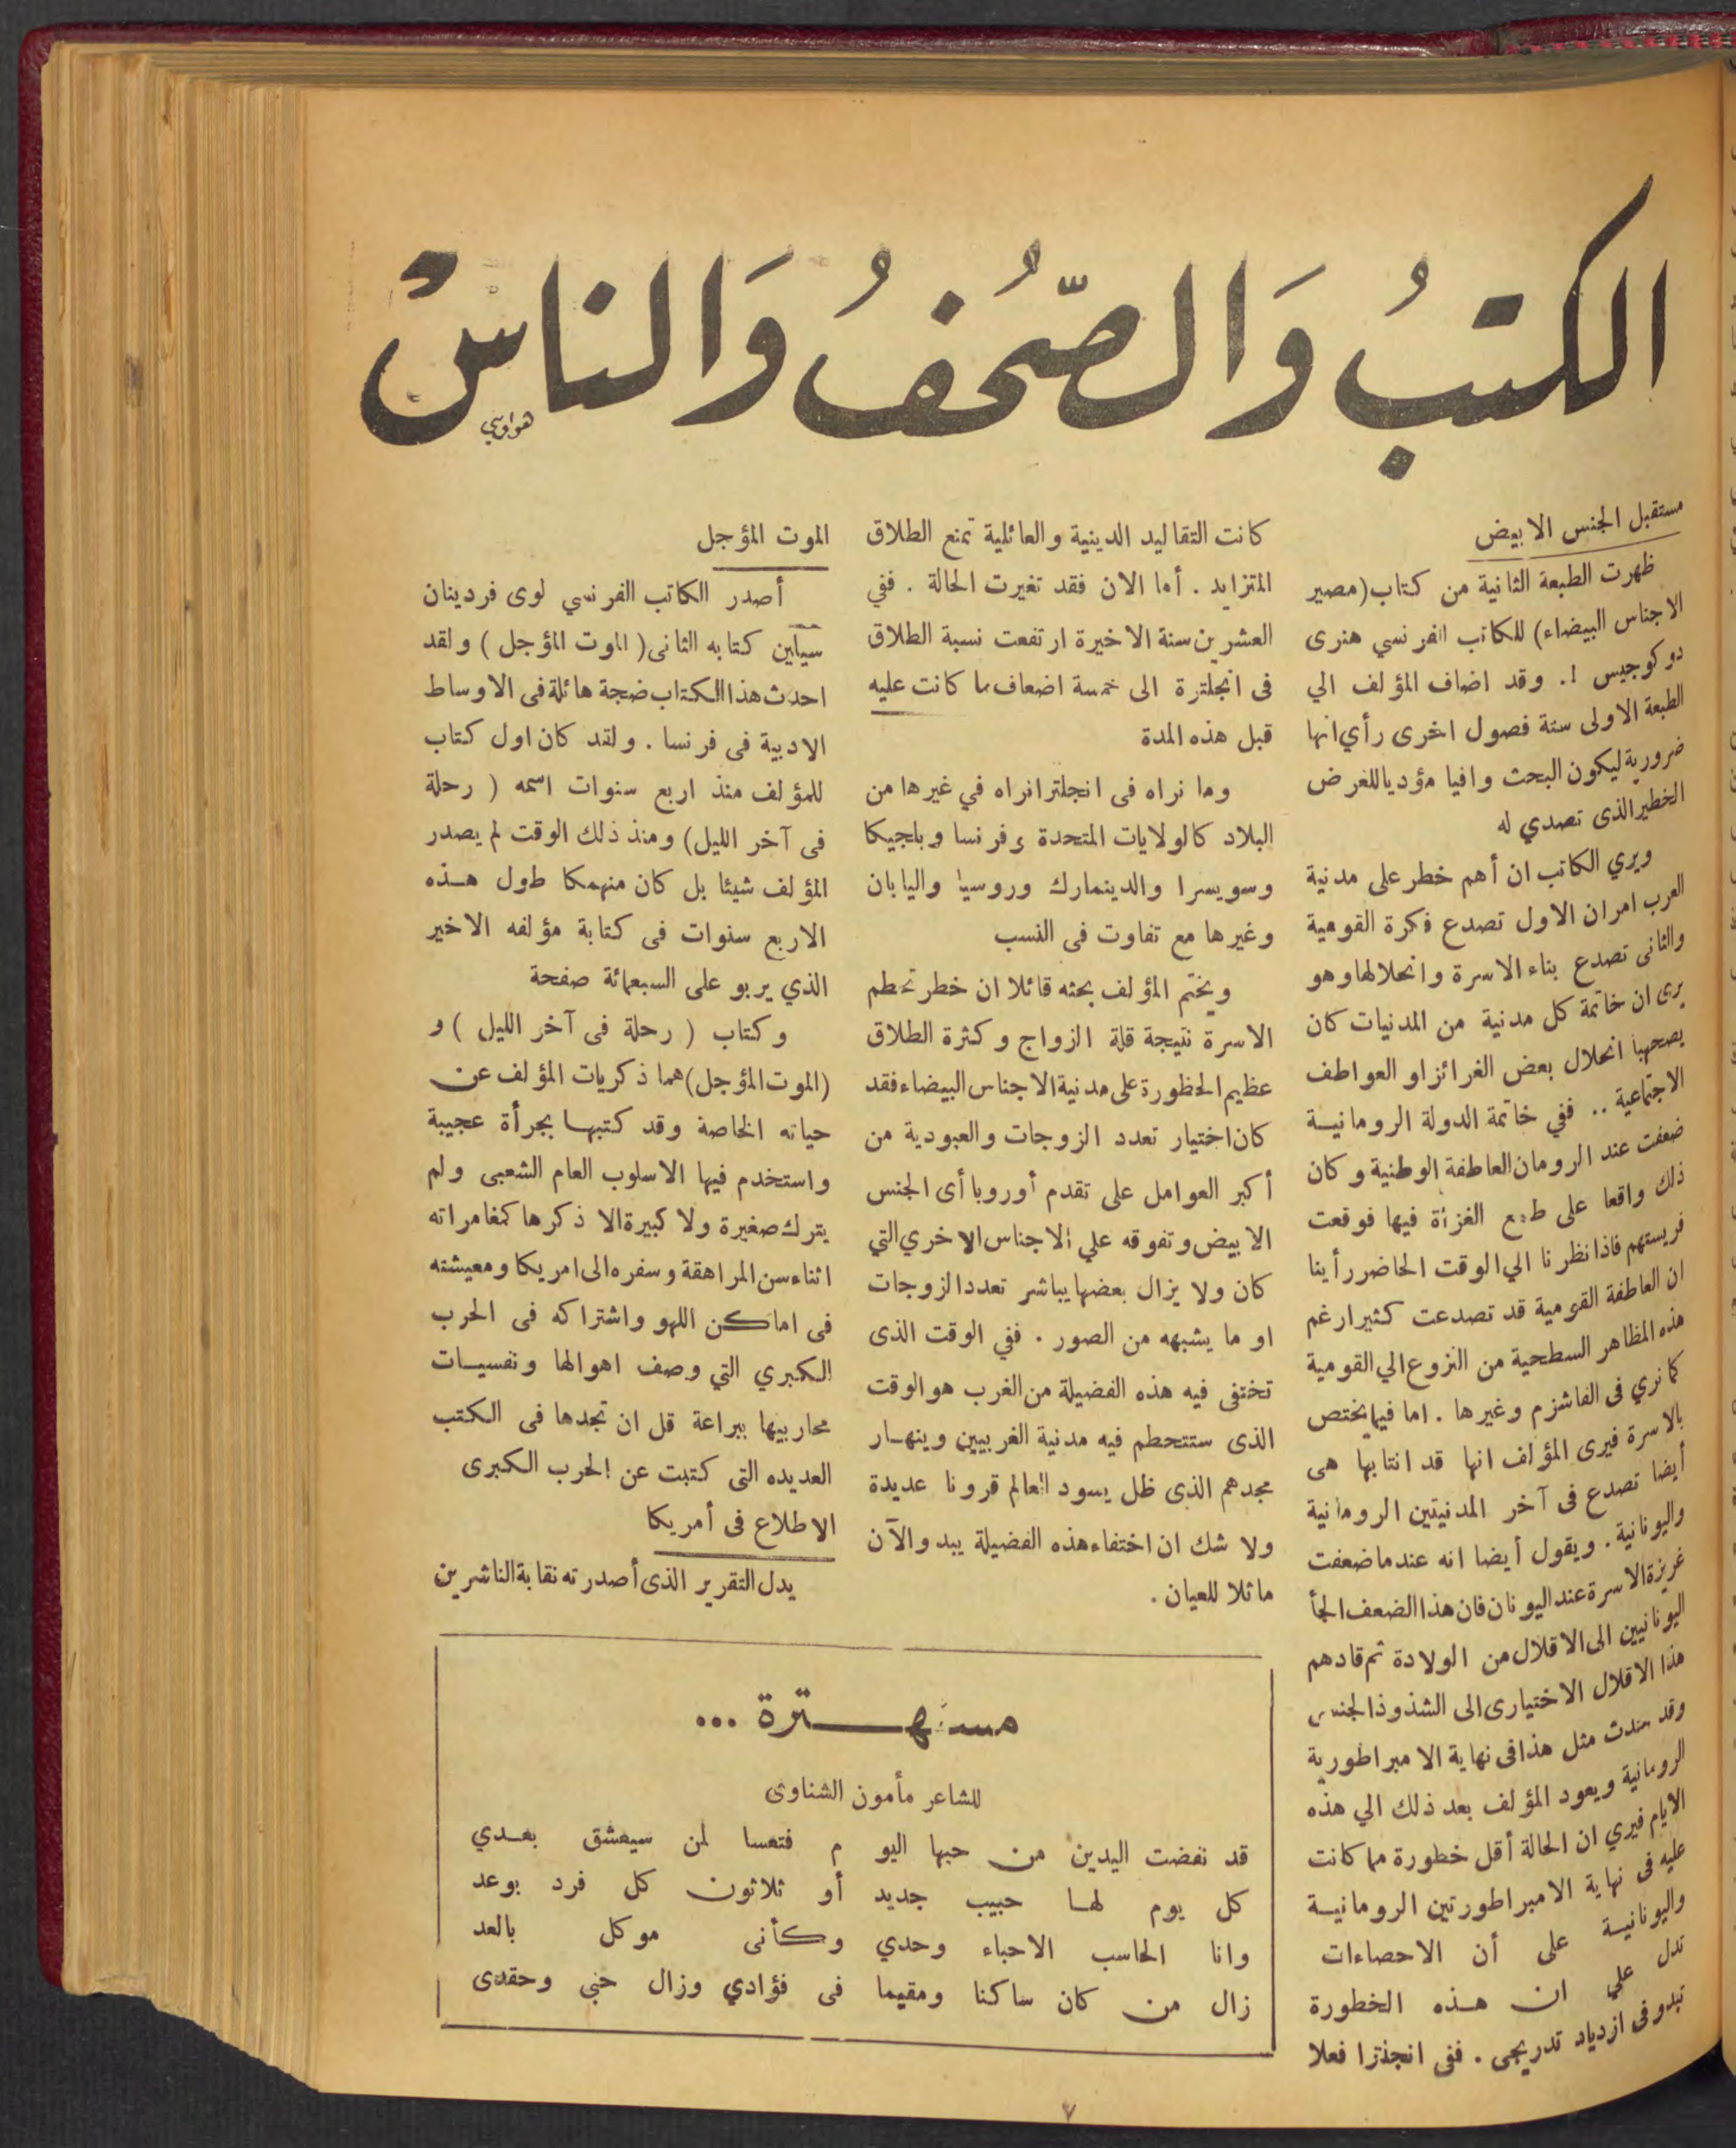 الكتبُ وَالصّحُفُ وَالناسْ
هواويني
مستقبل الجنس الابيض
ظهرت الطبعة الثانية من كتاب (مصير
الاجناس البيضاء) للكاتب الفرنسي هنرى
دوكوجيس !. وقد اضاف المؤلف الي
الطبعة الاولى ستة فصول اخرى رأي انها
ضرورية ليكون البحث وافيا مؤديا للغرض
الخطير الذى تصدي له
ويري الكاتب ان أهم خطر على مدنية
العرب امران الاول تصدع فكرة القومية
والثانى تصدع بناء الاسرة وانحلالها وهو
يرى ان خاتمة كل مدنية من المدنيات كان
يصحبها انحلال بعض الغرائز او العواطف
الاجتماعية .. ففي خاتمة الدولة الرومانية
ضعفت عند الرومان العاطفة الوطنية وكان
ذلك واقعا على طمع الغزاة فيها فوقعت
فريستهم فاذا نظرنا الي الوقت الحاضر رأينا
ان العاطفة القومية قد تصدعت كثيرا رغم
هذه المظاهر السطحية من النزوع الي القومية
كما نري فى الفاشزم وغيرها . اما فيما يختص
بالاسرة فيرى المؤلف انها قد انتابها هى
أيضا تصدع فى آخر المدنيتين الرومانية
واليونانية . ويقول أيضا انه عندما ضعفت
غريزة الاسرة عند اليونان فان هذا الضعف الجأ
اليونانيين الى الاقلال من الولادة ثم قادهم
هذا الاقلال الاختيارى الى الشذوذ الجنسى
وقد حدث مثل هذا فى نهاية الامبراطورية
الرومانية ويعود المؤلف بعد ذلك الي هذه
الايام فيري ان الحالة أقل خطورة مما كانت
عليه فى نهاية الامبراطورتين الرومانية
واليونانية على أن الاحصاءات
تدل علي ان هذه الخطورة
تبدو فى ازدياد تدريجى . ففى انجلترا فعلا
كانت التقاليد الدينية والعائلية تمنع الطلاق
المتزايد . أما الان فقد تغيرت الحالة . ففي
العشرين سنة الاخيرة ارتفعت نسبة الطلاق
فى انجلترة الى خمسة اضعاف ما كانت عليه
قبل هذه المدة
وما نراه فى انجلترا نراه في غيرها من
البلاد كالولايات المتحدة وفرنسا وبلجيكا
وسويسرا والدينمارك وروسيا واليابان
وغيرها مع تفاوت فى النسب
ويختم المؤلف بحثه قائلا ان خطر تحطم
الاسرة نتيجة قلة الزواج وكثرة الطلاق
عظيم الخطورة على مدنية الاجناس البيضاء فقد
كان اختيار تعدد الزوجات والعبودية من
أكبر العوامل على تقدم أوروبا أى الجنس
الابيض وتفوقه علي الاجناس الاخري التي
كان ولا يزال بعضها يباشر تعدد الزوجات
او ما يشبهه من الصور . ففي الوقت الذى
تختفى فيه هذه الفضيلة من الغرب هو الوقت
الذى ستتحطم فيه مدنية الغربيين وينهار
مجدهم الذى ظل يسود العالم قرونا عديدة
ولا شك ان اختفاء هذه الفضيلة يبدو الآن
ماثلا للعيان .
الموت المؤجل
أصدر الكاتب الفرنسي لوى فردينان
سيلين كتابه الثانى ( الموت المؤجل ) ولقد
احدث هذا الكتاب ضجة هائلة فى الاوساط
الادبية فى فرنسا . ولقد كان اول كتاب
للمؤلف منذ اربع سنوات اسمه ( رحلة
فى آخر الليل) ومنذ ذلك الوقت لم يصدر
المؤلف شيئا بل كان منهمكا طول هذه
الاربع سنوات فى كتابة مؤلفه الاخير
الذي يربو على السبعمائة صفحة
وكتاب ( رحلة فى آخر الليل ) و
(الموت المؤجل) هما ذكريات المؤلف عن
حياته الخاصة وقد كتبها بجرأة عجيبة
واستخدم فيها الاسلوب العام الشعبى ولم
يترك صغيرة ولا كبيرة الا ذكرها كمغامراته
اثناء سن المراهقة وسفره الى امريكا ومعيشته
فى اماكن اللهو واشتراكه فى الحرب
الكبري التي وصف اهوالها ونفسيات
محاربيها ببراعة قل ان تجدها فى الكتب
العديده التى كتبت عن الحرب الكبرى
الاطلاع فى أمريكا
يدل التقرير الذى أصدرته نقابة الناشرين
مستهترة ...
للشاعر مأمون الشناوى
قد نفضت اليدين من حبها اليو م فتعسا لمن سيعشق بعدي
كل يوم لها حبيب جديد أو ثلاثون كل فرد بوعد
وانا الحاسب الاحباء وحدي وكأنى موكل بالعد
زال من كان ساكنا ومقيما فى فؤادي وزال حبى وحقدى
٧